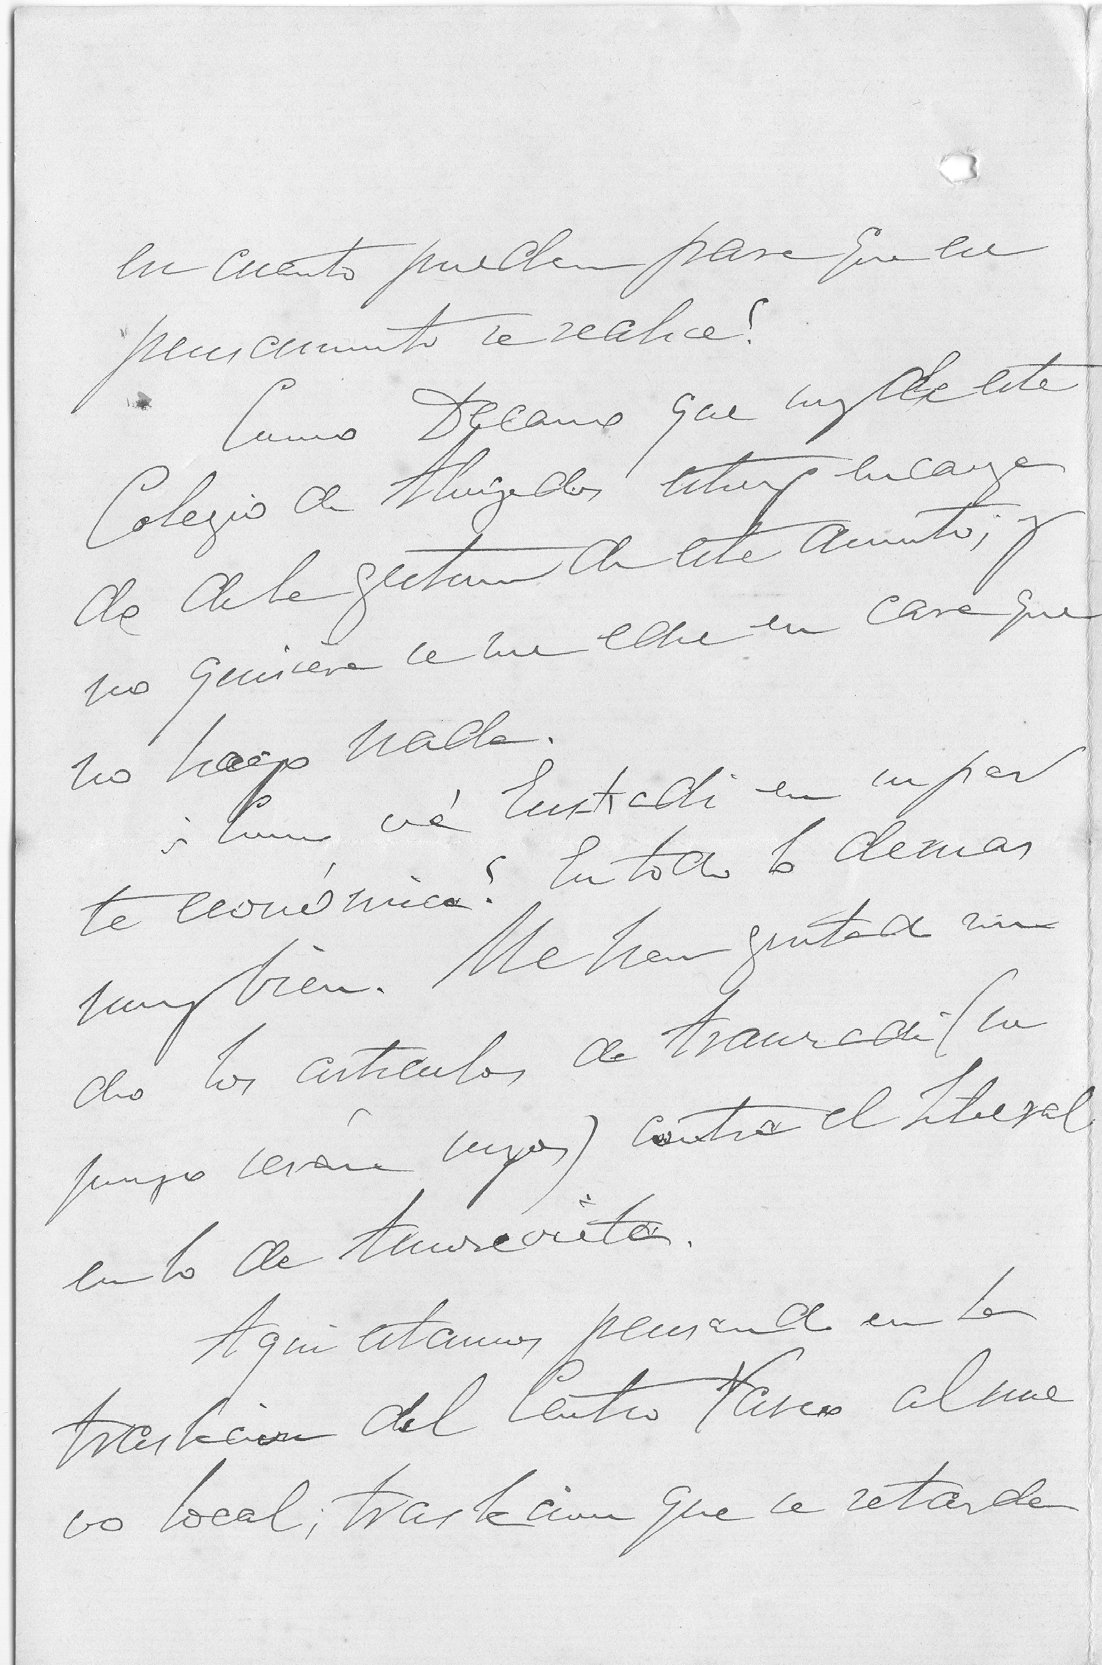 en cuanto pueden para que ese
pensamiento se realice?
Como Decano que soy de este
Colegio de Abogados estoy encarga
do de la gestion de este asunto; y
no quisiera se me eche en cara que
no hago nada.
¿Como vá Euzkadi en su par
te económica? En todo lo demas
muy bien. Me han gustado mu
cho los articulos de (su
pongo serán suyos) contra el Liberal
en lo de Amorevieta.
Aqui estamos pensando en la
traslacion del Centro Vasco al nue
vo local, traslacion que se retarda